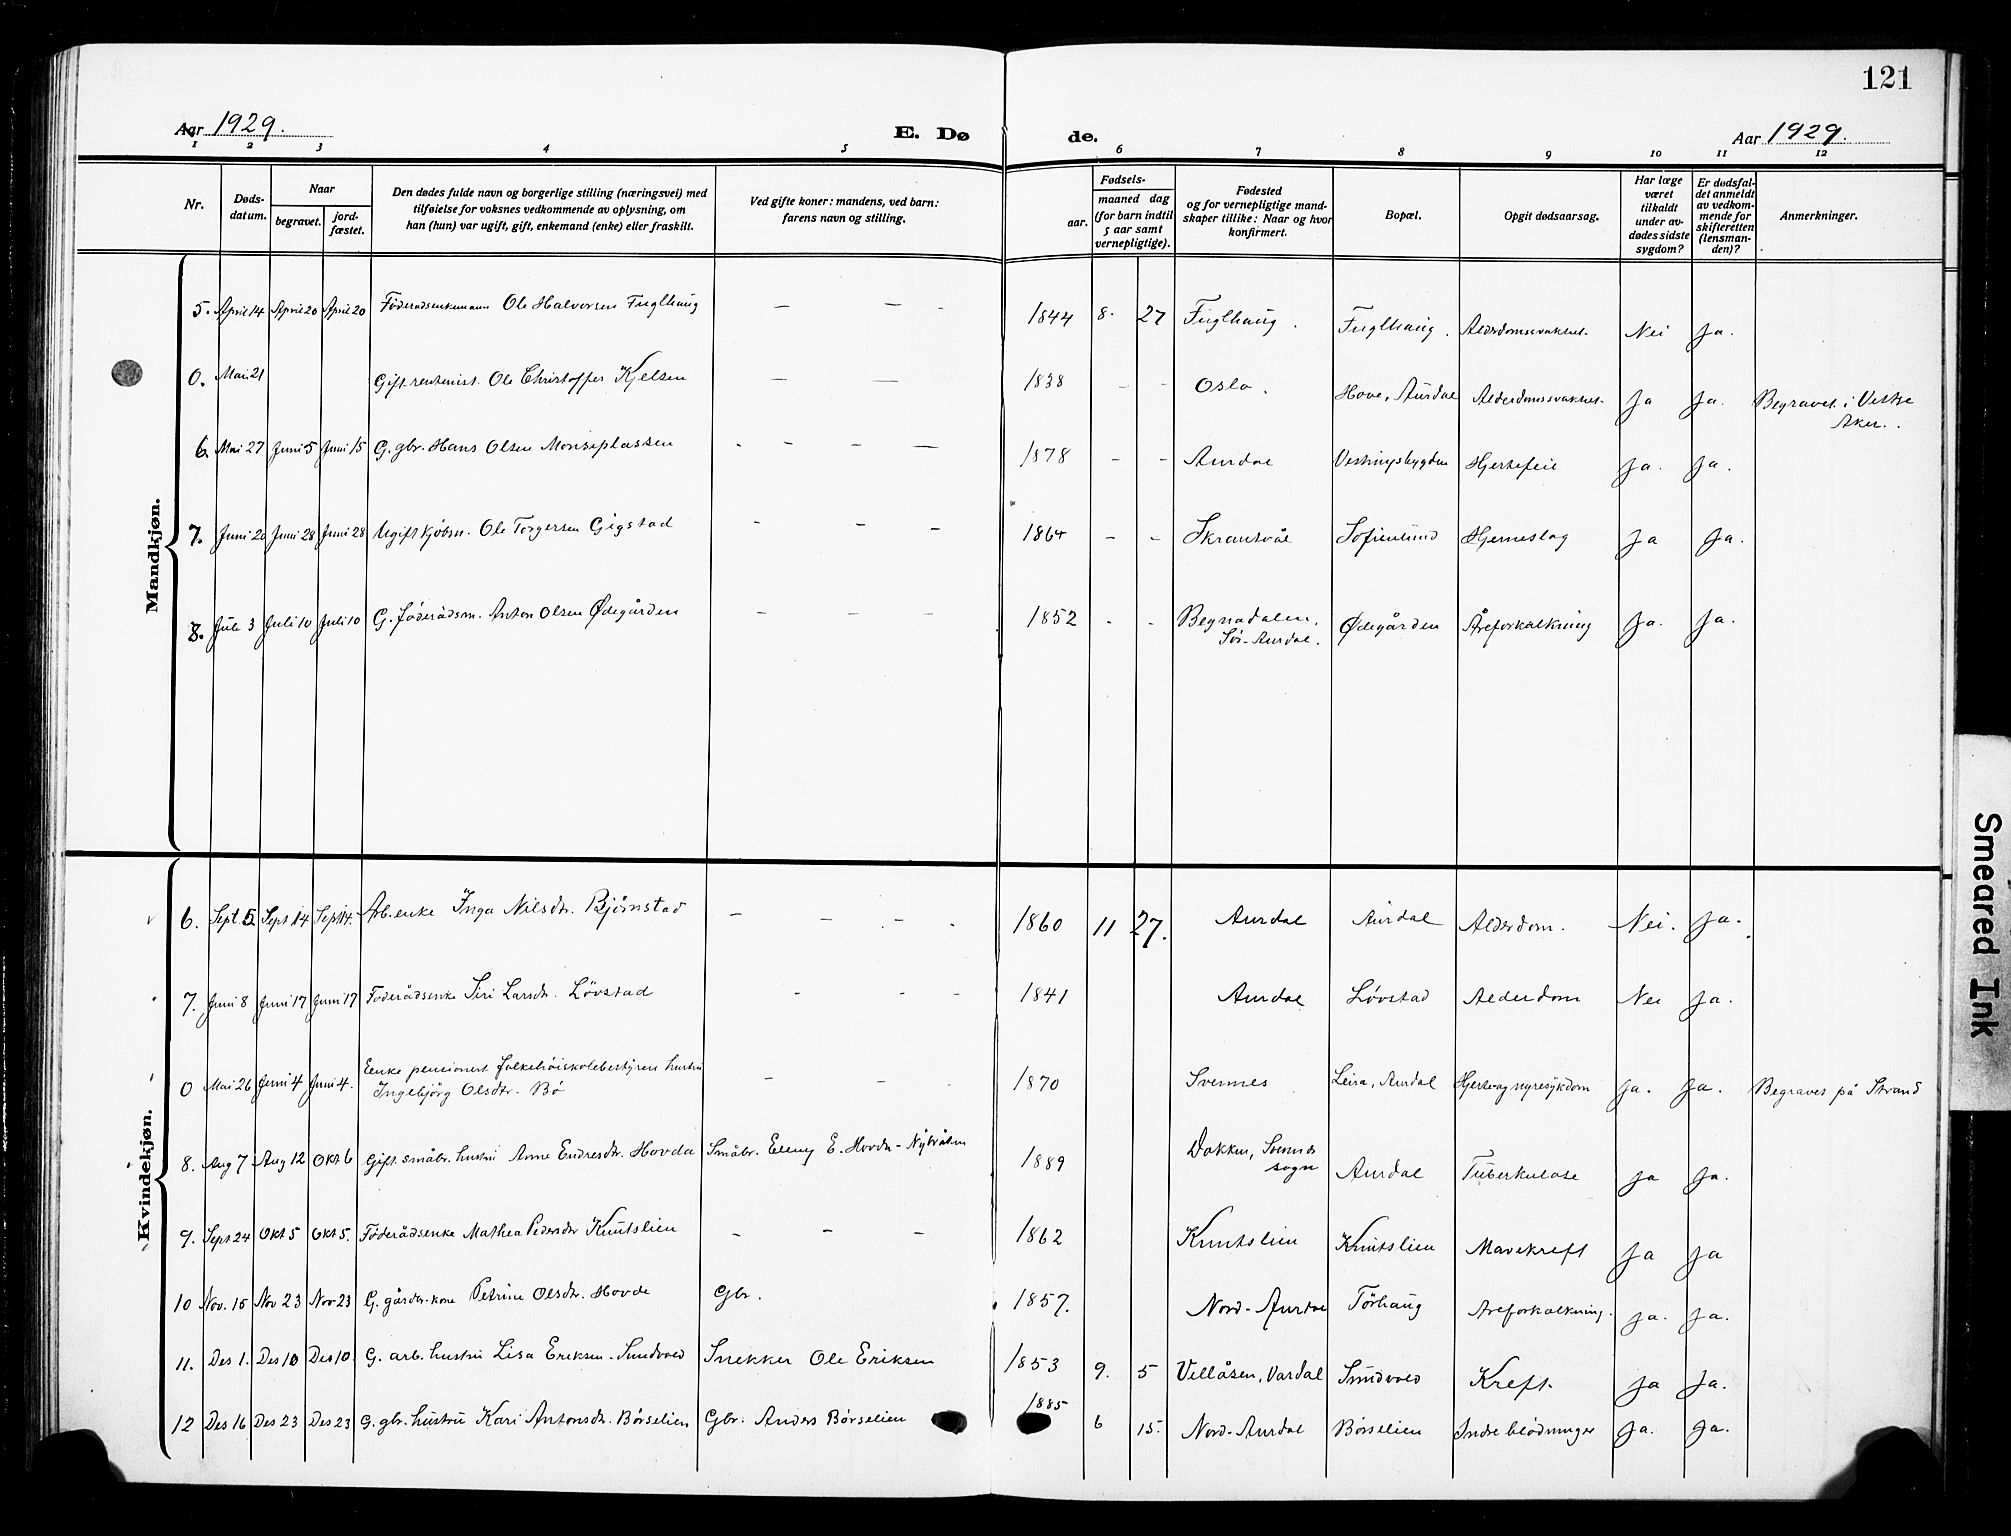 121
Aar 1929.
E. Dø
de.
Aar 1929.
1 2 3 4 5 6 7 8 9 10 11 12
Nr.
Døds-
datum.
Naar
begravet.
jord-
fæstet.
Den dødes fulde navn og borgerlige stilling (næringsvei) med
tilføielse for voksnes vedkommende av oplysning, om
han (hun) var ugift, gift, enkemand (enke) eller fraskilt.
Ved gifte koner: mandens, ved barn:
farens navn og stilling.
Fødsels-
aar.
maaned dag
(for barn indtil
5 aar samt
vernepligtige).
Fødested
og for vernepligtige mand-
skaper tillike: Naar og hvor
konfirmert.
Bopæl.
Opgit dødsaarsag.
Har læge
været
tilkaldt
under av-
dødes sidste
sygdom?
Er dødsfal-
det anmeldt
av vedkom-
mende for
skifteretten
(lensman-
den)?
Anmerkninger.
Mandkjøn.
5. April 14 April 20 April 20 Føderådsenkemann Ole Halvorsen Fuglhaug — — - 1844 8. 27 Fuglhaug. Fuglhaug. Alderdomssvakhet. Nei Ja.
0. Mai 21 Gift rentenist. Ole Christoffer Kjelsen — — 1838 - - Oslo. Hove, Aurdal Alderdomssvakhet. Ja Ja. Begravet i Vestre
Aker.
6. Mai 27 Juni 5 Juni 15 G. gbr. Hans Olsen Monseplassen - - - — 1878 - - Aurdal Vestringsbygden Hjertefeil Ja. Ja.
7. Juni 20 Juni 28 Juni 28 Ugift kjöbm. Ole Torgersen Gigstad - - - 1864 - - Skrautvål Sofienlund Hjerneslag Ja Ja.
8. Juli 3 Juli 10 Juli 10 G. föderådsm. Anton Olsen Ødegården - - - 1852 - - Begnadalen,
Sør-Aurdal. Ødegården Åreforkalkning Ja. Ja.
Kvindekjøn.
6. Sept 5 Sept 14 Sept 14. Arb.enke Inga Nilsdtr. Bjørnstad - - - . 1860 11 27. Aurdal Aurdal Alderdom. Nei. Ja.
7. Juni 8 Juni 17 Juni 17 Föderådsenke Siri Larsdtr. Lövstad - - - 1841 Aurdal Lövstad Alderdom Nei Ja.
0 Mai 26 Juni 4 Juni 4. Enke pensionert folkehöiskolebestyrers hustru
Ingebjörg Olsdtr. Bö - - - 1870 Svennes Leira, Aurdal Hjerte og nyresykdom Ja. Ja. Begravet på Strand
8. Aug 7 Aug 12 Okt 6 Gift småbr. hustru Anne Endresdtr. Hovda Småbr. E. Hovda - 1889 Dokken,
sogn Aurdal Tuberkulose Ja Ja.
9. Sept 24 Okt 5 Okt 5. Föderådsenke Mathea Pedersdtr Knutslien - - - 1862 Knutslien Knutslien Mavekreft Ja Ja
10 Nov. 15 Nov 23 Nov 23 G. gårdbr. kone Petrine Olsdtr. Hovde Gbr. 1857. Nord-Aurdal Törhaug Areforkalkning. Ja. Ja.
11. Des 1. Des 10 Des 10. G. arb. hustru Lisa Eriksen - Sundvold Snekker Ole Eriksen 1853 9. 5 Villåsen, Vardal Sundvold Kreft. Ja Ja.
12 Des 16 Des 23 Des 23 G. gbr. hustru Kari Antonsdtr. Börselien Gbr. Anders Börselien 1885 6 15. Nord-Aurdal Börselien Indre blödninger Ja. Ja.
Smeared Ink